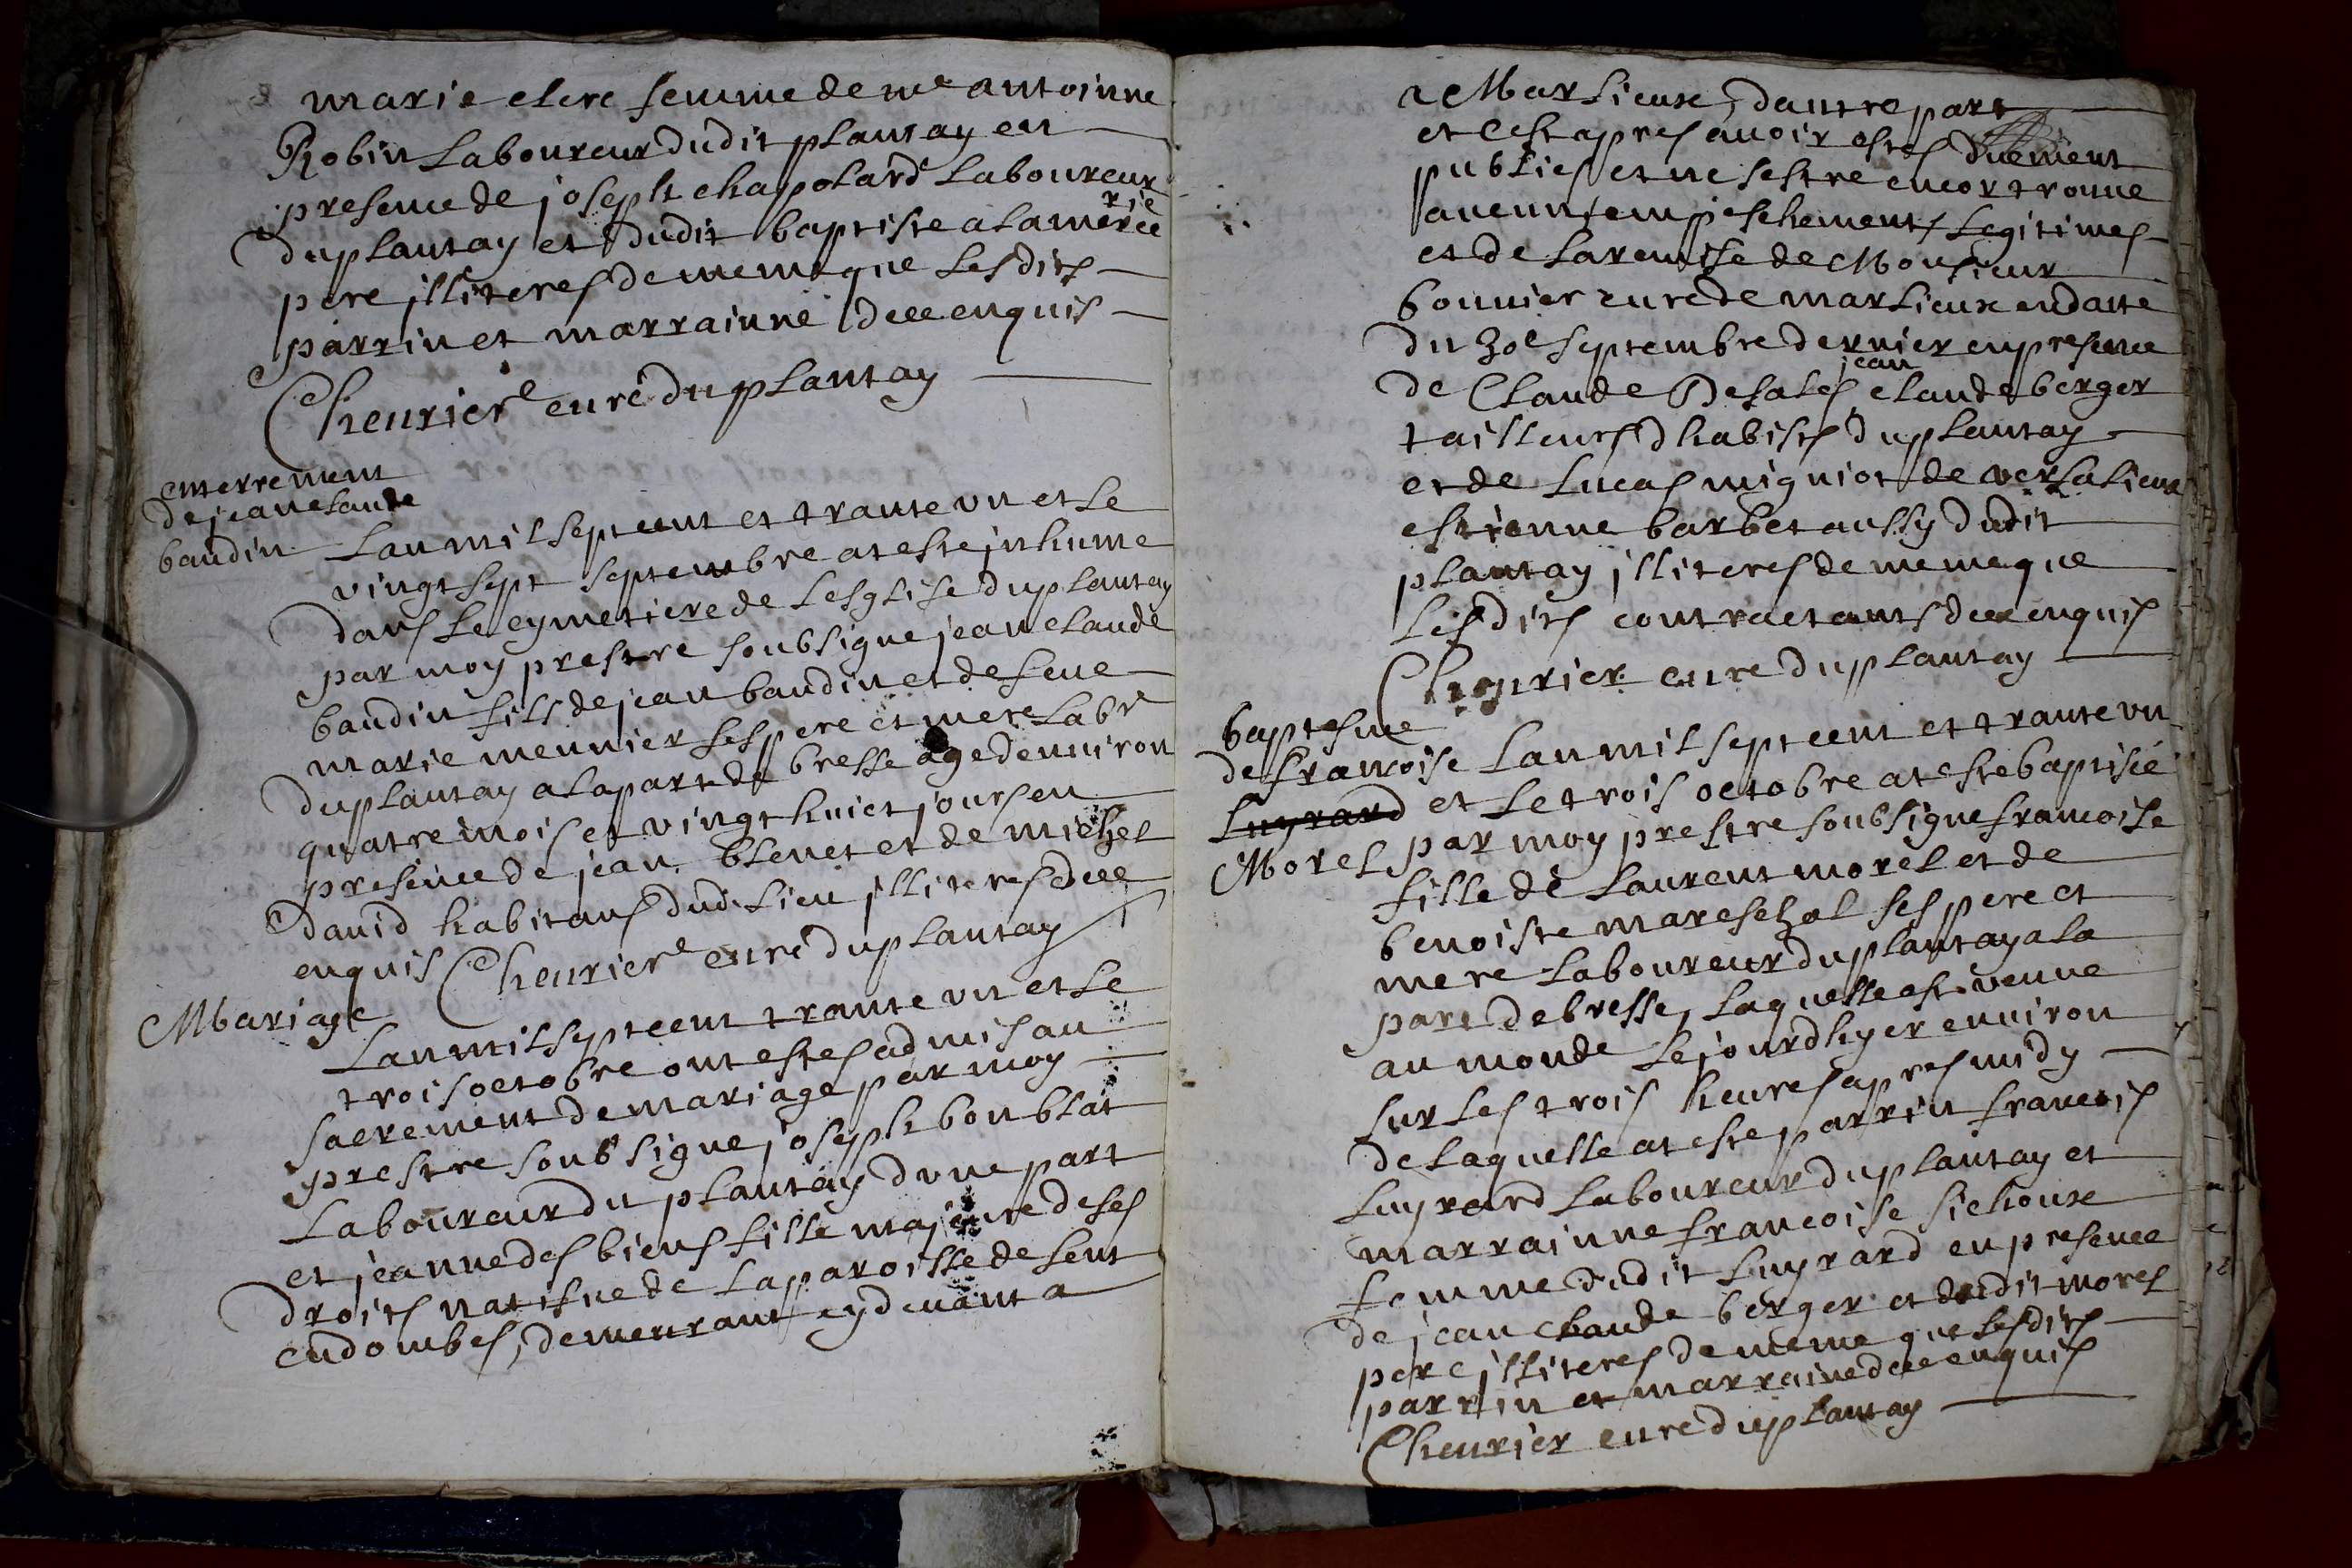 marie clerc femme de me antoinne
Robin Laboureur dudit plantay en
presence de joseph chapolard Laboureur
du plantay et dudit baptiste alamercerie
pere jlliteres de meme que lesdits
parrin et marrainne de ce enquis
Cheurier curé du plantay
enterrement
de jean claude
baudin
Lan mil sept cent et trante vn et le
vingt sept septembre at este jnhume
dans le cymetiere de lesglise du plantay
par moy prestre soubsigne jean claude
baudin fils de jean baudin et de feue
marie meunier ses pere et mere labr
du plantay a la part de bresse age denuiron
quatre mois et vingt huict jours en
presence de jean blenet et de michel
dauid habitans dud. lieu jlliteres de ce
enquis Cheurier curé du plantay
Mariage
Lan mil sept cent trante vn et le
trois octobre ont estes admis au
sacrement de mariage par moy
prestre soubsigne joseph bonblat
Laboureur du plantay dvne part
et jeanne des biens fille majeure de ses
droits natifue de la paroisse de sent
en dombes, demeurant cy deuant a
a Marlieux, dautre part
et cest apres auoir estes duement
publies et ne sestre encor trouue
aucun empeschement legitimes
et de la remise de Monsieur
bonnier cure de marlieux en datte
du 30e septembre dernier en presence
de Claude Desales jean claude berger
tailleurs dhabists du plantay
et de Lucas migniot de versalieux
estienne barbet aussy dudit
plantay jlliteres de meme que
lesdits contractants de ce enquis
Cheurier cure du plantay
baptesme
de francoise
Luyrard
Morel
Lan mil sept cent et trante vn
et le trois octobre at este baptisée
par moy prestre soubsigne francoise
fille de Laurent morel et de
benoiste mareschal ses pere et
mere Laboureur du plantay a la
part de bresse, laquelle est venue
au monde le jourdhyer enuiron
sur les trois heures apres midy
de laquelle at este parrin francois
Luyrard Laboureur du plantay et
marrainne francoise sichoux
femme dudit Luyrard en presence
de jean claude berger et dudit morel
pere jlliteres de meme que lesdits
parrin et marraine de ce enquis
Cheurier cure du plantay